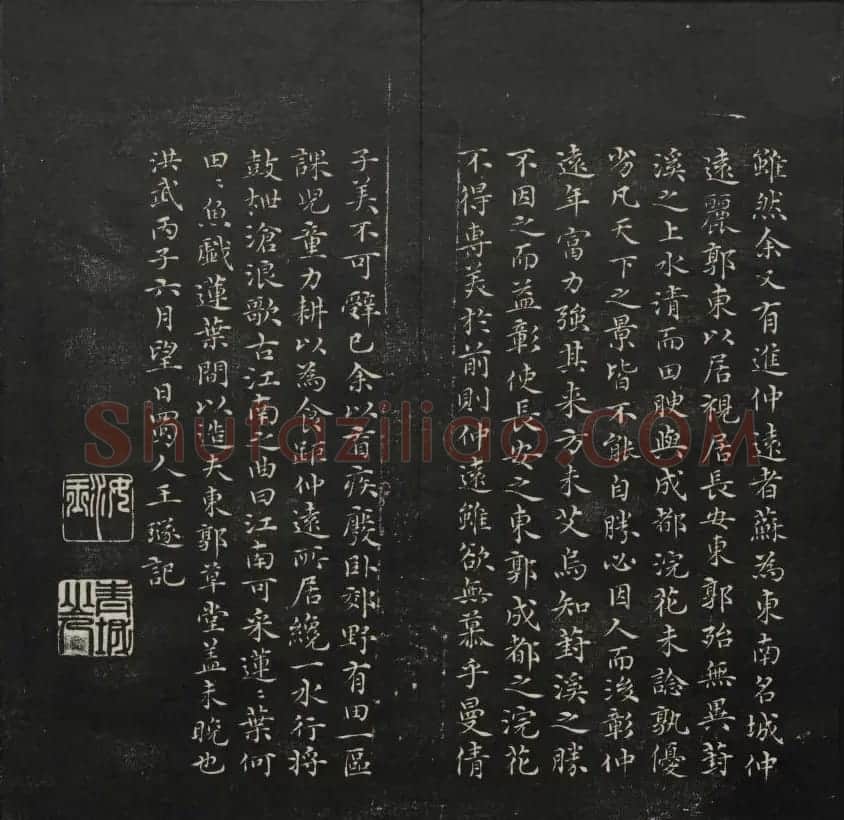 雖然余又有進仲遠者蘇為東南名城仲
遠麗郭東以居視居長安東郭殆無異葑
溪之上水清而田腴與成都浣花未諗孰優
劣凡天下之景皆不能自勝必因人而後彰仲
遠年富力強其来方未艾烏知葑溪之勝
不因之而益彰使長安之東郭成都之浣花
不得專美於前則仲遠雖欲無慕乎曼倩
子美不可辭已余以肓疾廢卧郊野有田一區
課児童力耕以為食距仲遠所居纔一水行将
鼓枻滄浪歌古江南之曲曰江南可采蓮〻葉何
田〻魚戲蓮葉間以造夫東郭草堂盖未晚也
洪武丙子六月望日蜀人王璲記
汝玉
青城山
Shufaziliao.COM